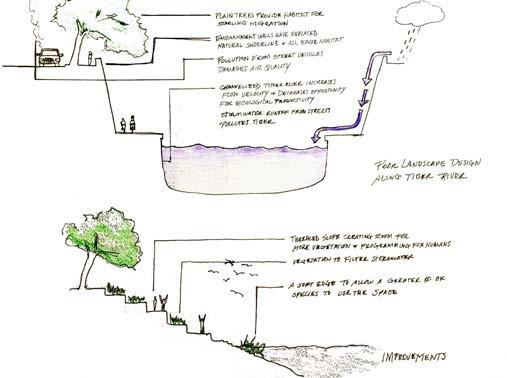 PLAIN TREES PROVIDE HABITAT FOR
STARLING MIGRATION
EMBANKMENT WALLS HAVE REPLACED
NATURAL SHORELINE + ALL EDGE HABITAT
POLLUTION FROM STREET VEHICLES
DAMAGES AIR QUALITY
CHANNELIZED TIBER RIVER INCREASES
FLOW VELOCITY + DECREASES OPPORTUNITY
FOR ECOLOGICAL PRODUCTIVITY
STORMWATER RUNOFF FROM STREETS
POLLUTES TIBER
POOR LANDSCAPE DESIGN
ALONG TIBER RIVER
TERRACED SLOPE CREATING ROOM FOR
MORE VEGETATION + PROGRAMMING FOR HUMANS
VEGETATION TO FILTER STORMWATER
A SOFT EDGE TO ALLOW A GREATER # OF
SPECIES TO USE THE SPACE
IMPROVEMENTS